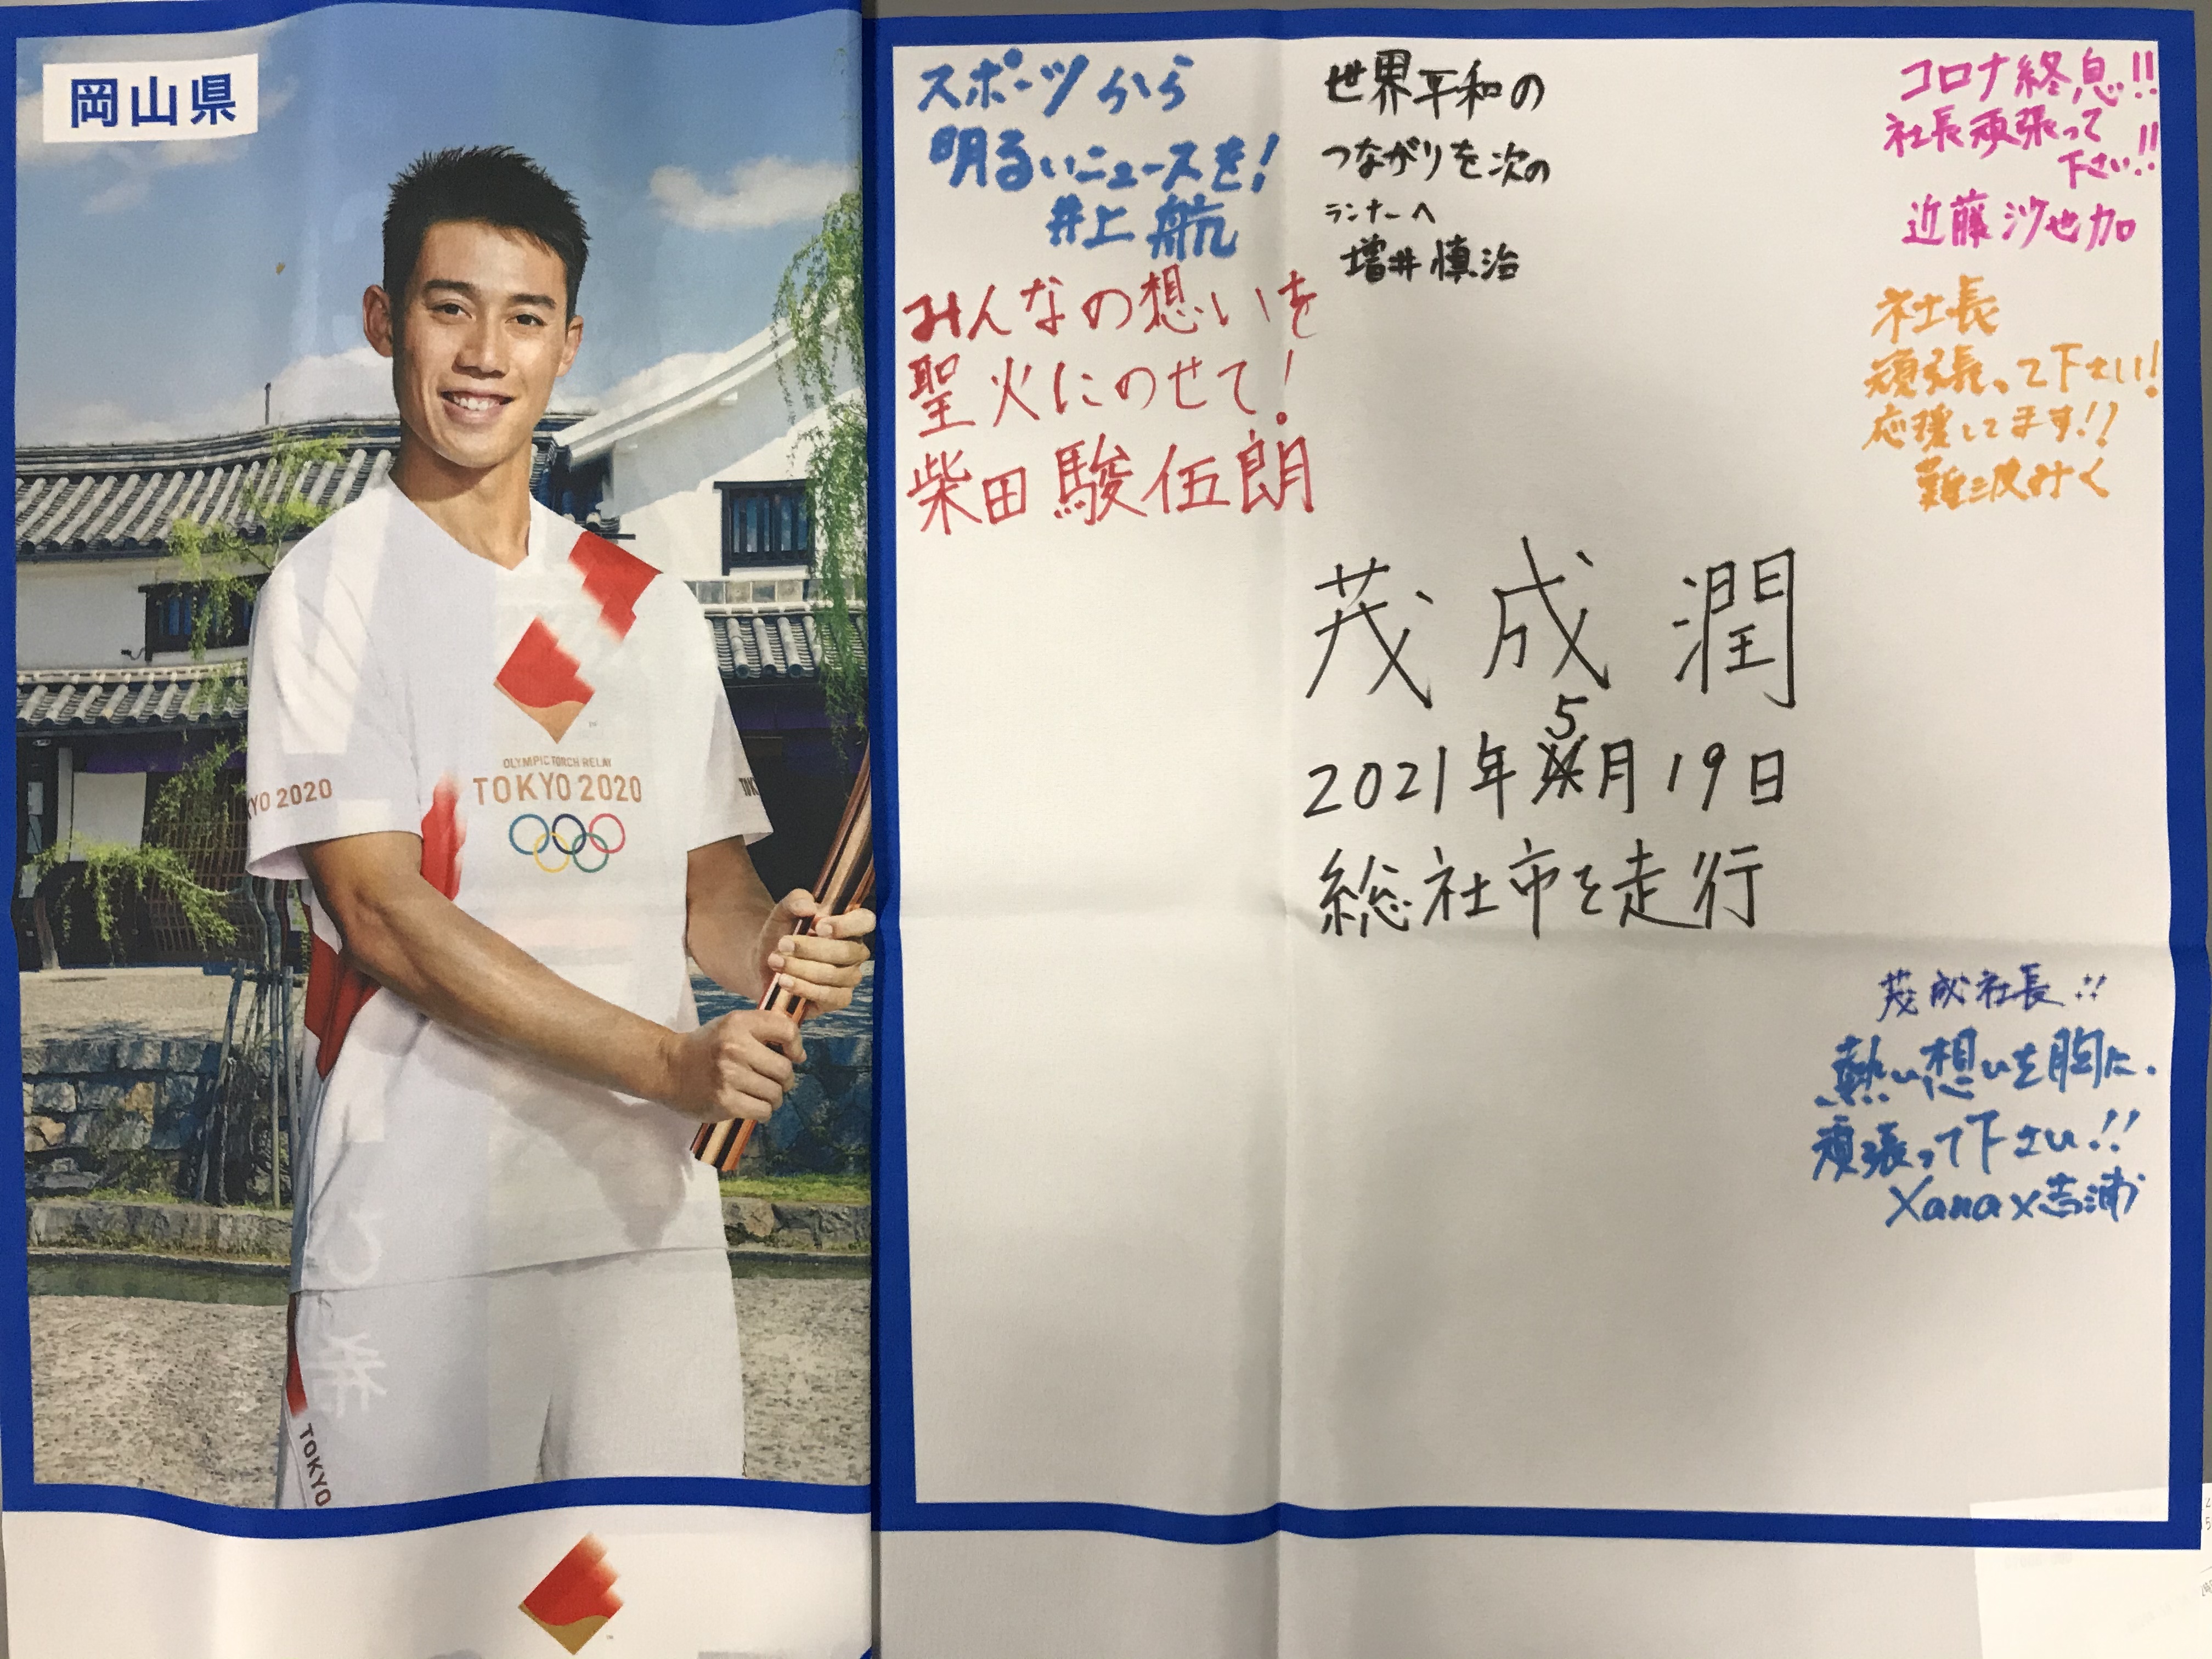 岡山県
YO 2020
OLYMPIC TORCH RELAY
TOKYO 2020
TOKYO
スポーツから
明るいニュースを!
井上航
みんなの想いを
聖火にのせて!
柴田駿伍朗
世界平和の
つながりを次の
ランナーへ
増井慎治
コロナ終息!!
社長頑張って
下さい!!
近藤沙也加
社長
頑張って下さい!
応援してます!!
難波みく
茂成潤
5
2021年月19日
総社市を走行
茂成社長!!
熱い想いを胸に、
頑張って下さい!!
Xanax吉浦